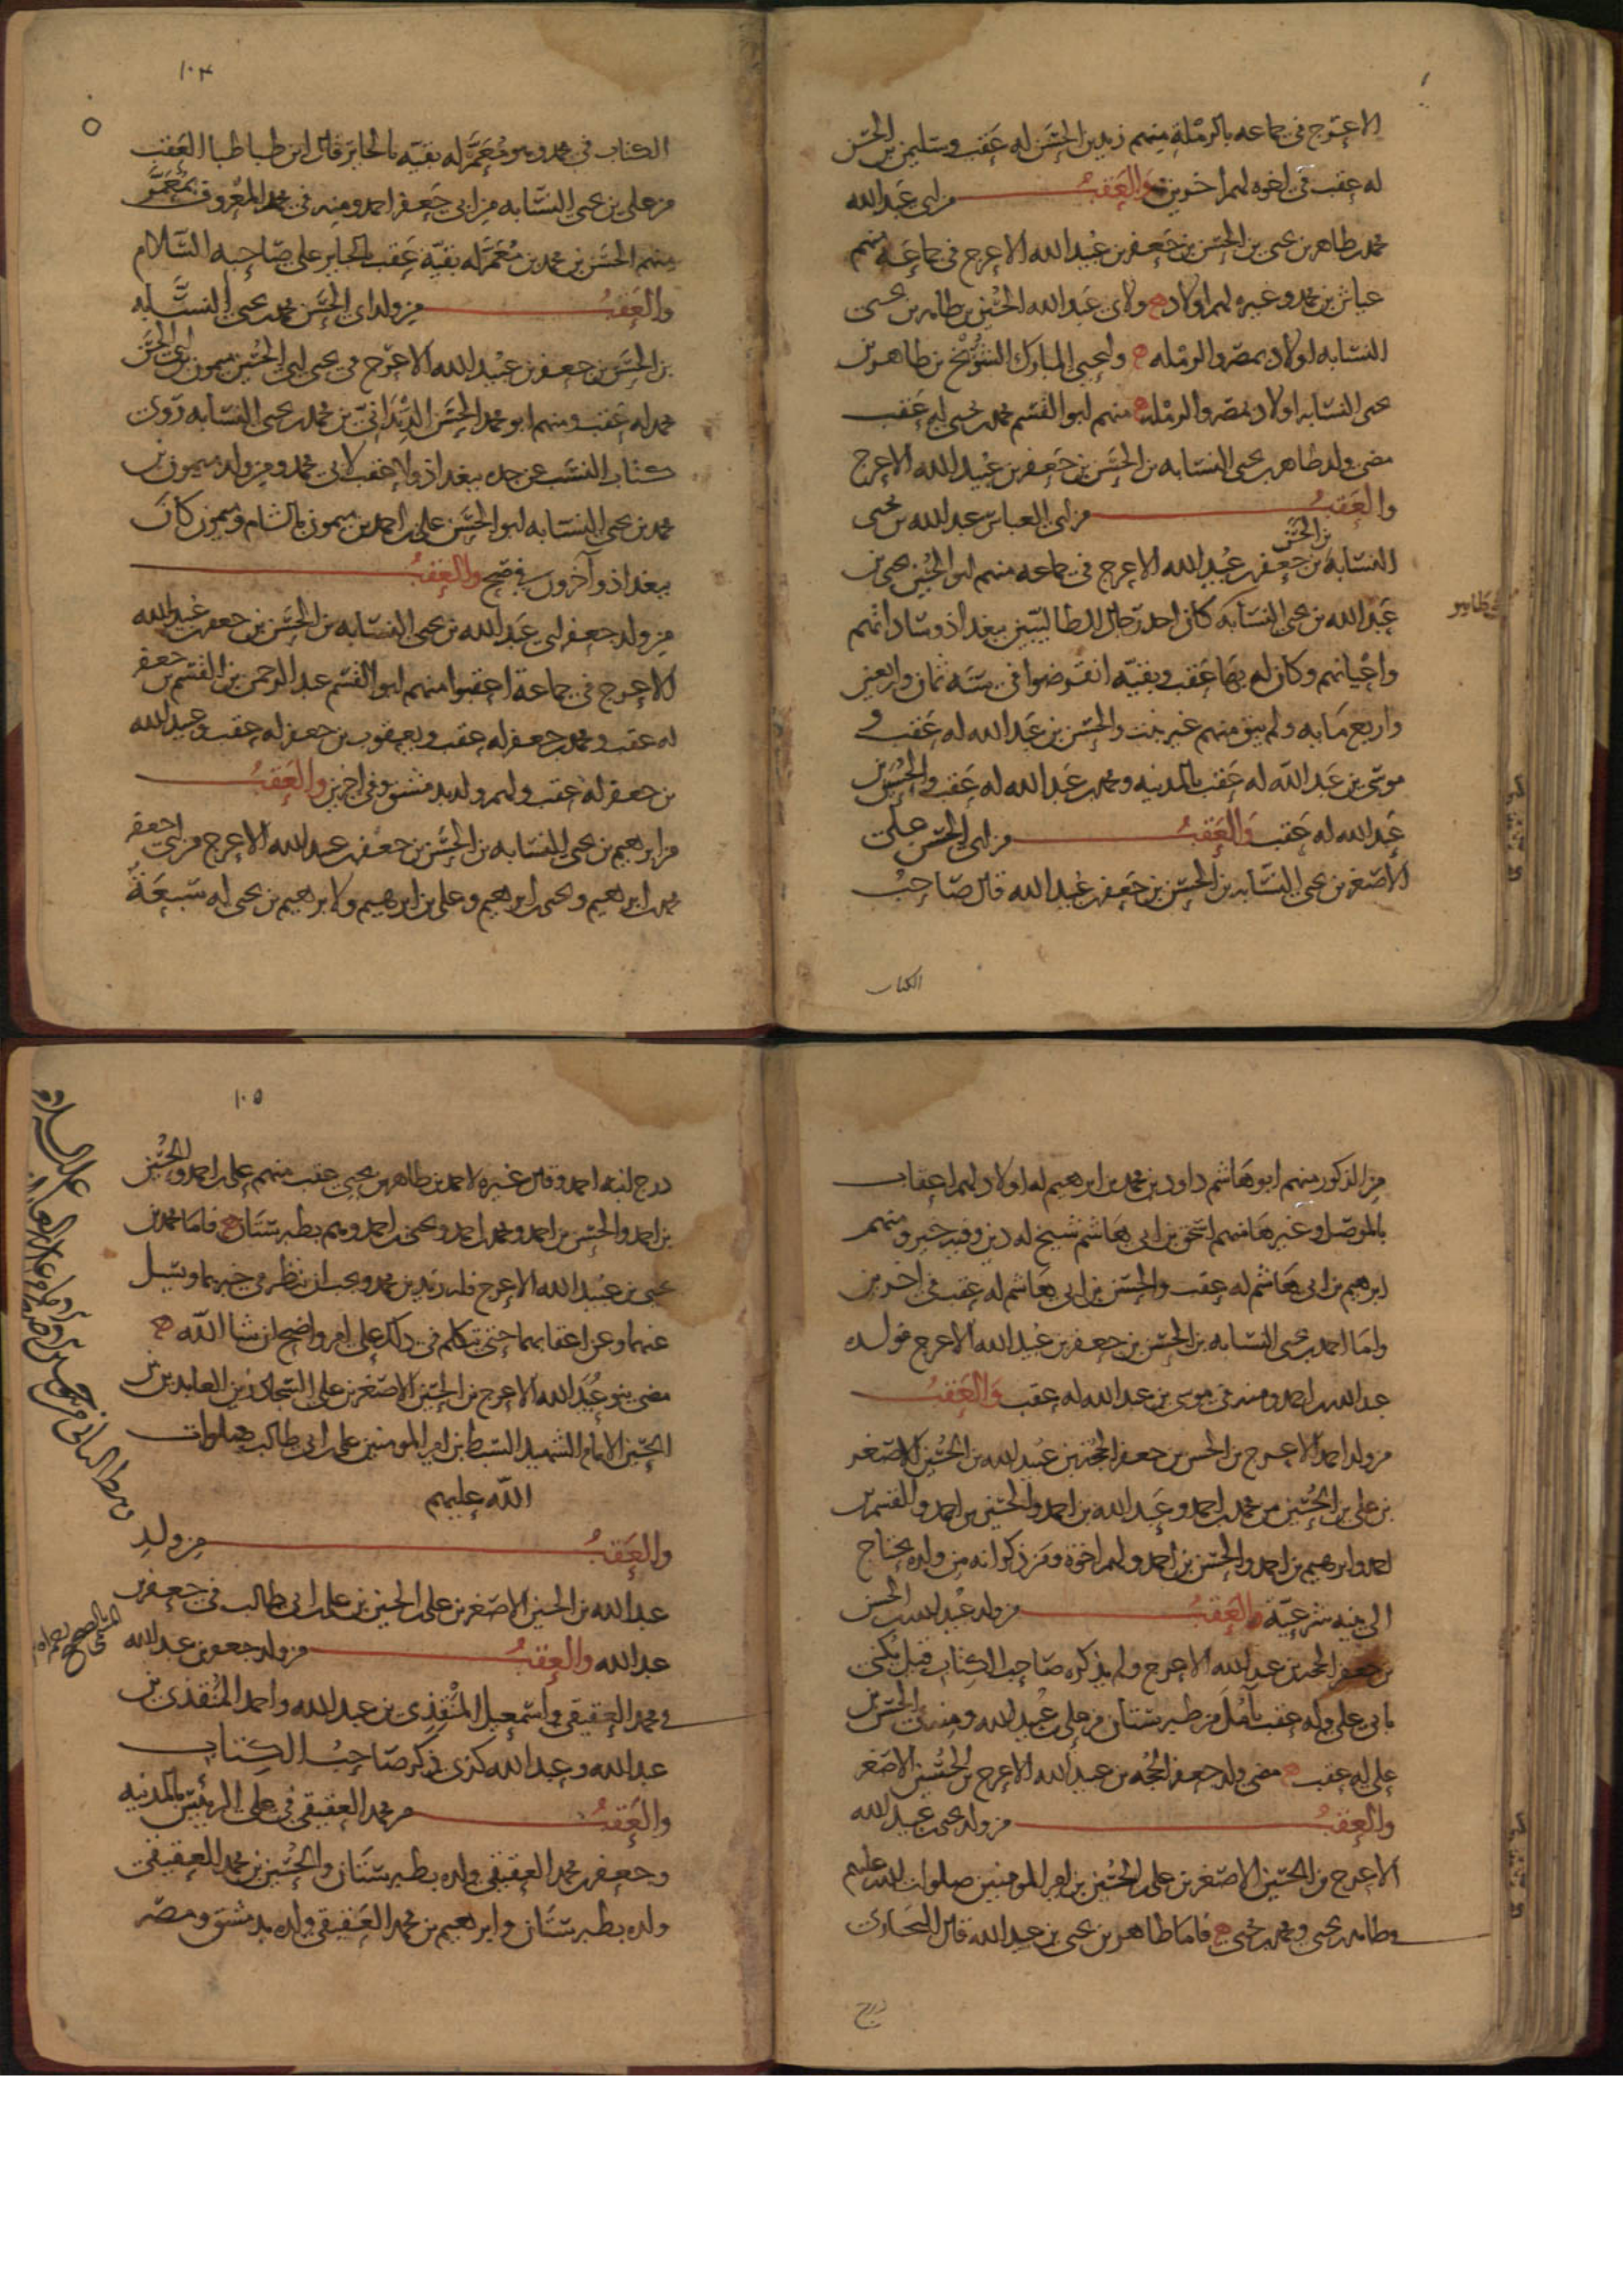 الاعرج في جماعه بالرمله منهم زيد بن الحسن له عقب وسليمن بن الحسن
له عقب في اخوه لهم اخرين والعقب من ابي عبد الله
محمد بن طاهر بن يحيى بن الحسن بن جعفر بن عبيد الله الاعرج في جماعه منهم
عياش بن محمد وغيره لهم اولاد ولابي عبد الله الحسين بن طاهر بن يحيى
النسابه اولاد بمصر والرمله وليحيى المبارك الشويخ بن طاهر بن
يحيى النسابه اولاد بمصر والرمله منهم ابو القسم محمد بن يحيى له عقب
مضى ولد طاهر بن يحيى النسابه بن الحسن بن جعفر بن عبيد الله الاعرج
والعقب من ابي العباس عبد الله بن يحيى
النسابه بن الحسن بن جعفر بن عبيد الله الاعرج في جماعه منهم ابو الحسين يحيى بن
عبد الله بن يحيى النسابه كان احد رجال الطالبيين ببغداذ وساداتهم
واعيانهم وكان له بها عقب وبقيه انقرضوا في سنه ثمان واربعين
واربع مايه ولم يبق منهم غير بنت والحسن بن عبد الله له عقب و
موسى بن عبد الله له عقب بالمدينه ومحمد بن عبد الله له عقب والحسين بن
عبد الله له عقب والعقب من ابي الحسن علي
الاصغر بن يحيى النسابه بن الحسن بن جعفر بن عبيد الله قال صاحب
الكتاب
١٠٤
الكتاب في محمد وهو معمر له بقيه بالحاير قال ابن طباطبا العقب
من علي بن يحيى النسابه من ابي جعفر احمد ومنه في محمد المعروف بمعمر
منهم الحسن بن محمد بن معمر له بقية عقب بالحاير على صاحبه السلام
والعقب من ولد ابي الحسن محمد بن يحيى النسابه
بن الحسن بن جعفر بن عبيد الله الاعرج في يحيى ابي الحسين ميمون ابي الحسن
محمد له عقب ومنهم ابو محمد الحسن الدنداني بن محمد بن يحيى النسابه روى
كتاب النسب عن جده ببغداذ ولا عقب لابي محمد ومن ولد ميمون بن
محمد بن يحيى النسابه ابو الحسن علي بن احمد بن ميمون بالشام وميمون كان
ببغداذ وآخرون في صح والعقب
من ولد جعفر ابي عبد الله بن يحيى النسابه بن الحسن بن جعفر بن عبيد الله
الاعرج في جماعة اعقبوا منهم ابو القسم عبد الرحمن بن القسم بن جعفر
له عقب ومحمد بن جعفر له عقب ويعقوب بن جعفر له عقب وعبيد الله
بن جعفر له عقب ولهم ولد بدمشق وفي اخرين والعقب
من ابراهيم بن يحيى النسابه بن الحسن بن جعفر بن عبيد الله الاعرج من ابي جعفر
محمد بن ابراهيم ويحيى بن ابراهيم وعلي بن ابراهيم ولابراهيم بن يحيى له سبعة
من الذكور منهم ابو هاشم داود بن محمد بن ابراهيم له اولاد لهم اعقاب
بالموصل وغيرها منهم اسحق بن ابي هاشم شيخ له دين وفيه خير ومنهم
ابرهيم بن ابي هاشم له عقب والحسن بن ابي هاشم له عقب في اخرين
واما احمد بن يحيى النسابه بن الحسن بن جعفر بن عبيد الله الاعرج فولده
عبد الله بن احمد ومنه في موسى بن عبد الله له عقب والعقب
من ولد احمد الاعرج بن الحسن بن جعفر الحجه بن عبيد الله بن الحسين الاصغر
بن علي بن الحسين من محمد بن احمد وعبد الله بن احمد والحسين بن احمد والقسم بن
احمد وابرهيم بن احمد والحسن بن احمد ولهم اخوة ومن ذكر انه من ولده يحتاج
الى بينه شرعية والعقب من ولد عبيد الله بن الحسن
بن جعفر الحجه بن عبيد الله الاعرج ولم يذكره صاحب الكتاب قيل يكنى
بابي علي وله عقب بآمل من طبرستان من علي بن عبيد الله ومنه الحسن بن
علي له عقب مضى ولد جعفر الحجه بن عبيد الله الاعرج بن الحسين الاصغر
والعقب من ولد يحيى بن عبيد الله
الاعرج بن الحسين الاصغر بن علي بن الحسين بن امير المومنين صلوات الله عليهم
وطاهر بن يحيى ومحمد بن يحيى فاما طاهر بن يحيى بن عبيد الله قال البخاري
درج
١٠٥
درج ابنه احمد وقال غيره لاحمد بن طاهر بن يحيى عقب منهم علي بن احمد والحسين
بن احمد والحسن بن احمد ومحمد بن احمد ويحيى بن احمد وهم بطبرستان فاما محمد بن
يحيى بن عبيد الله الاعرج فله زيد بن محمد ويجب ان ننظر في خبرهما ونسل
عنهما وعن اعقابهما حتى نتكلم في ذلك على امر واضح ان شا الله
مضى بنو عبيد الله الاعرج بن الحسين الاصغر بن علي السجاد زين العابدين بن
الحسين الامام الشهيد السبط بن امير المومنين علي بن ابي طالب صلوات
الله عليهم
والعقب من ولد
عبد الله بن الحسين الاصغر بن علي بن الحسين بن علي بن ابي طالب في جعفر بن
عبد الله والعقب من ولد جعفر بن عبد الله
في محمد العقيقي واسمعيل المنقذي بن عبد الله واحمد المنقذي بن
عبد الله وعبد الله كذى ذكر صاحب الكتاب
والعقب من محمد العقيقي في علي الرئيس بالمدينه
وجعفر بن محمد العقيقي ولده بطبرستان والحسين بن محمد العقيقي
ولده بطبرستان وابرهيم بن محمد العقيقي ولده بدمشق ومصر